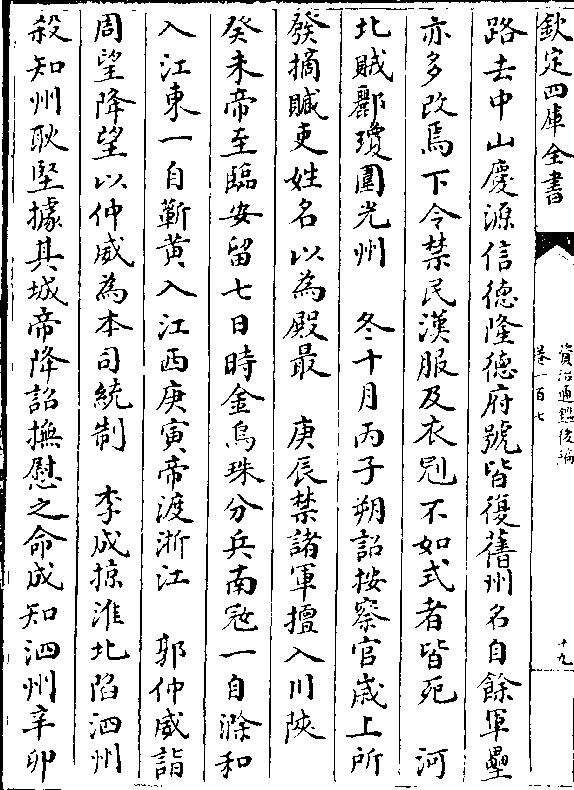 欽定四庫全書
資治通鑑後編
卷一百七
十九
路去中山慶源信德隆德府號皆復舊州名自餘軍壘
亦多改焉下令禁民漢服及衣冠不如式者皆死　河
北賊酈瓊圍光州　冬十月丙子朔詔按察官歲上所
發摘贓吏姓名以為殿最　庚辰禁諸軍擅入川陝
癸未帝至臨安留七日時金烏珠分兵南冦一自滁和
入江東一自蘄黃入江西庚寅帝渡浙江　郭仲威詣
周望降望以仲威為本司統制　李成掠淮北陷泗州
殺知州耿堅據其城帝降詔撫慰之命成知泗州辛卯